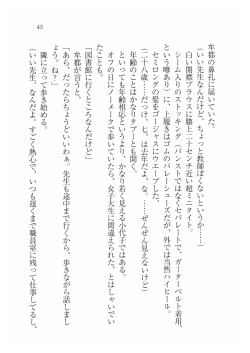 45
牟都の鼻孔に届いていた。
（いい先生なんだけど、ちょっと教師ぽくないというか……）
白い開襟ブラウスに膝上二十センチ近い超ミニタイト。
シーム入りのストッキング（パンストではなくセパレートで、ガーターベルト着用、
という噂あり）に、上履きはゴムのバレーシューズだが、外では当然ハイヒール。
セミロングの髪をゴージャスにウエーブした、
（二十八歳……だっけ、七、は去年だよな、……ぜんぜん見えないけど）
年齢のことはかなりタブーとも聞く。
といっても年齢相応というより、かなり若く見える小代子ではある。
オフの日にノーメークで歩いていたら、女子大生に間違えられた、とはしゃいでい
たことも。
「図書館に行くところなんだけど」
牟都が言うと、
「あら、だったらちょうどいいわぁ。先生も途中まで行くから、歩きながら話しまし
ょう。ね？」
隣に立って歩き始める。
（いい先生、なんだよな。すごく熱心で、いつも遅くまで職員室に残って仕事してるし、